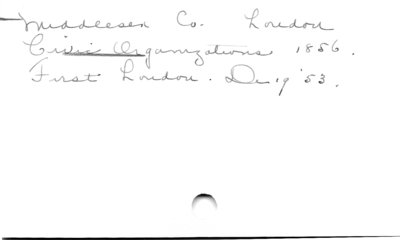 Middlesex Co. London
Civic Organizations 1856.
First London. De 19 '53.